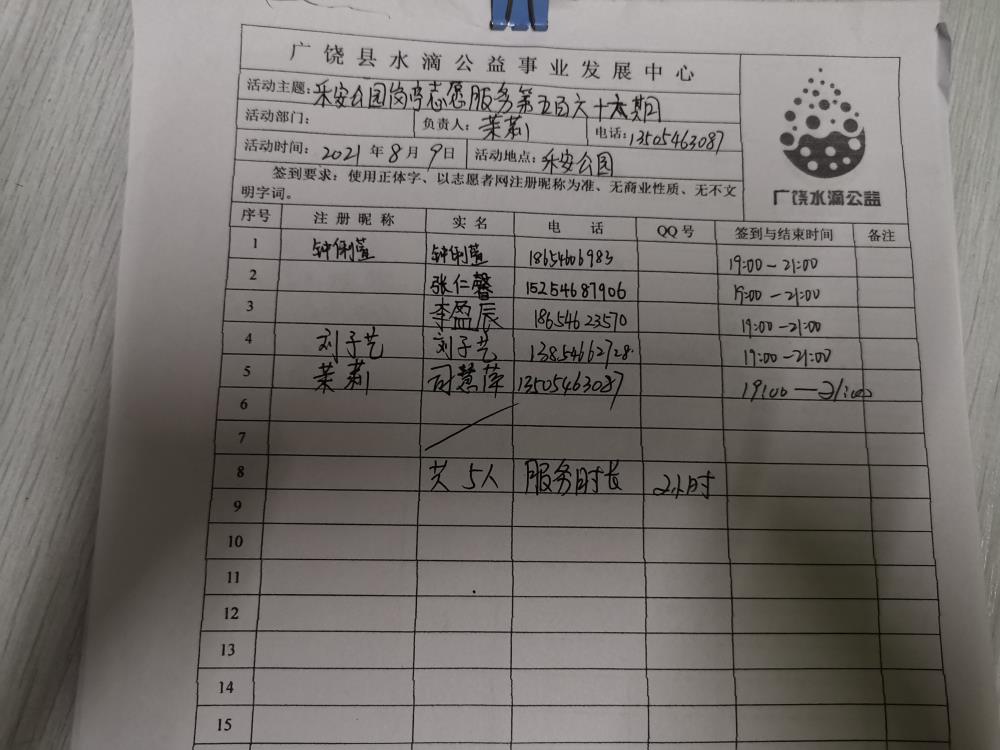 广饶县水滴公益事业发展中心
活动主题：乐安公园岗亭志愿服务第五百六十六期
活动部门： 负责人：茉莉 电话：13505463087
活动时间：2021年8月9日 活动地点：乐安公园
广饶水滴公益
签到要求：使用正体字、以志愿者网注册昵称为准、无商业性质、无不文
明字词。
序号 注册昵称 实名 电话 QQ号 签到与结束时间 备注
1 钟俐萱 钟俐萱 18654606983 19:00-21:00
2 张仁馨 15254687906 19:00-21:00
3 李盈辰 18654623570 19:00-21:00
4 刘子艺 刘子艺 13854662728 19:00-21:00
5 茉莉 司慧萍 13505463087 19:00—21:00
6
7
8 共5人 服务时长 2小时
9
10
11
12
13
14
15